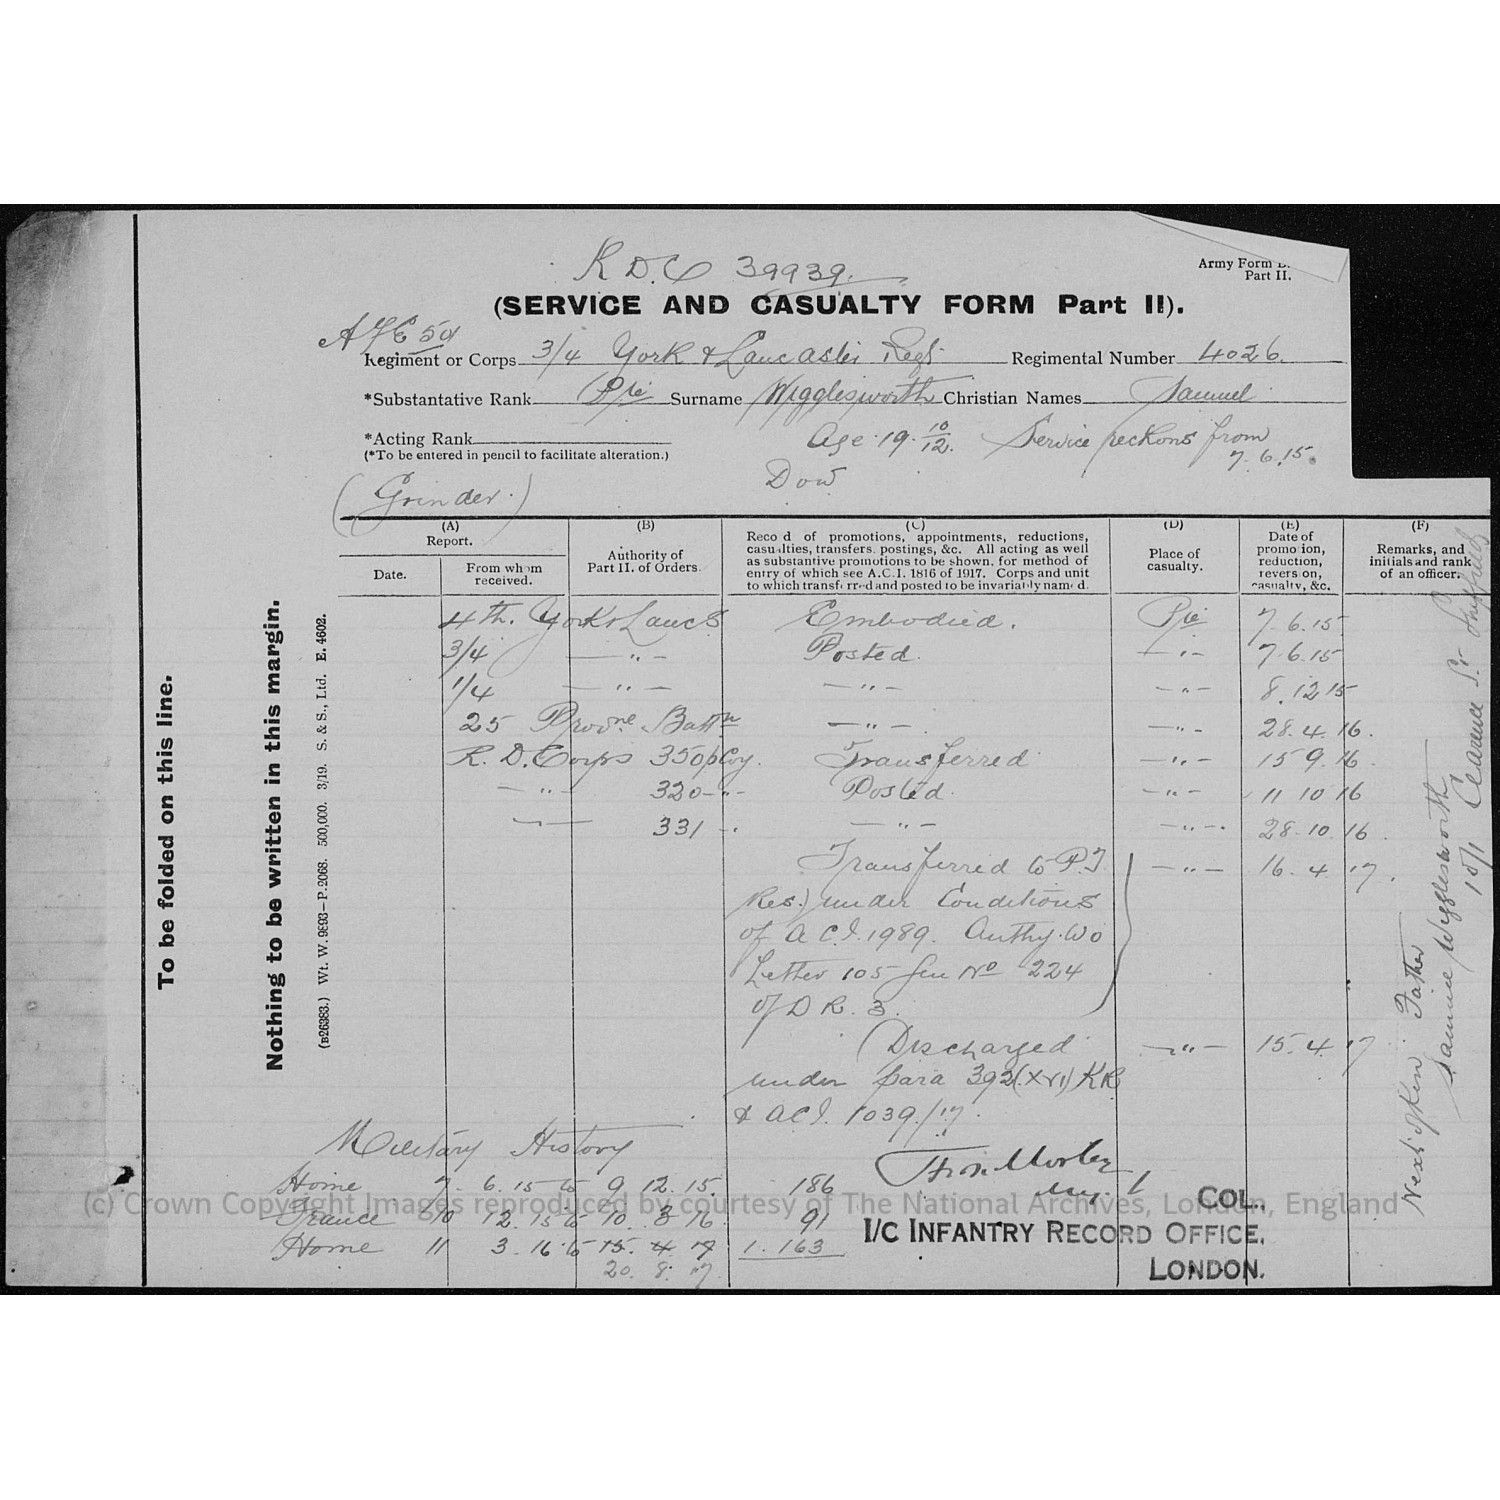 R.D.C 39939.
Army Form
Part II.
(SERVICE AND CASUALTY FORM Part II).
Regiment or Corps 3/4 York & Lancaster Regt Regimental Number 4026.
*Substantative Rank Pte Surname Wigglesworth Christian Names Samuel
*Acting Rank Age 19 10/12. Service reckons from
(*To be entered in pencil to facilitate alteration.) 7.6.15.
Dow
(Grinder.)
(A) (B) (C) (D) (E) (F)
Report.
Date.
From whom
received.
Authority of
Part II. of Orders.
Record of promotions, appointments, reductions,
casualties, transfers, postings, &c. All acting as well
as substantive promotions to be shown, for method of
entry of which see A.C.I. 1816 of 1917. Corps and unit
to which transferred and posted to be invariably named.
Place of
casualty.
Date of
promotion,
reduction,
reversion,
casualty, &c.
Remarks, and
initials and rank
of an officer.
4th. York & Lancs Embodied. Pte 7.6.15
3/4 —"— Posted. —"— 7.6.15
1/4 —"— —"— —"— 8.12.15
25 Provne. Battn —"— —"— 28.4.16.
R.D. Corps 350 p Coy. Transferred —"— 15 9.16.
—"— 320 —"— Posted. —"— 11 10 16
—"— 331 —"— —"— —"— 28.10.16.
Transferred to P.T. —"— 16.4.17.
Res.) under Conditions
of A.C.I. 1989. Authy. WO
Letter 105 Gen No 224
of D R. 3.
Discharged —"— 15.4.17
under para 392(XVI) KR
& ACI. 1039/17.
Military History
Home 7. 6. 15 to 9 12. 15. 186
France 10 12. 15 to 10. 3 16 91
Home 11 3. 16 to 15. 4 17 1. 163
20. 8. 17.
COL.,
I/C INFANTRY RECORD OFFICE,
LONDON.
Next of Kin Father
Samuel Wigglesworth
Clarence St Sheffield
To be folded on this line.
Nothing to be written in this margin.
(B26383.) Wt. W. 9893–P.2068. 500,000. 3/19. S. & S., Ltd. E. 4602.
(c) Crown Copyright Images reproduced by courtesy of The National Archives, London, England